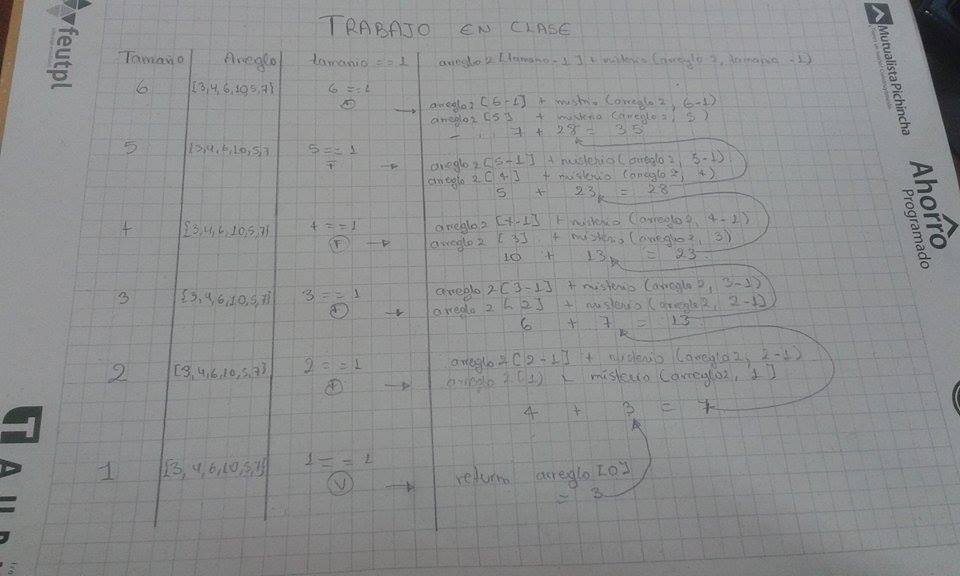 TRABAJO EN CLASE
Tamaño Arreglo tamanio == 1 arreglo 2 [tamano - 1] + misterio (arreglo 2, tamano - 1)
6 {3,4,6,10,5,7} 6 == 1
F → arreglo2 [6-1] + mistrio (arreglo 2, 6-1)
arreglo 2 [5] + misterio (arreglo 2, 5)
7 + 28 = 35
5 {3,4,6,10,5,7 5 == 1
F → arreglo 2 [5-1] + misterio (arreglo2, 5-1)
arreglo 2 [4] + misterio (arreglo2, 4)
5 + 23 = 28
4 {3,4,6,10,5,7} 4 == 1 arreglo2 [4-1] + misterio (arreglo2, 4-1)
F → arreglo 2 [3] + misterio (arreglo2, 3)
10 + 13 = 23
3 {3,4,6,10,5,7} 3 == 1 arreglo 2 [3-1] + misterio (arreglo 2, 3-1)
F → arreglo 2 [2] + misterio (arreglo2, 2-1)
6 + 7 = 13
2 {3,4,6,10,5,7} 2 == 1 arreglo 2 [2-1] + misterio (arreglo2, 2-1)
F → arreglo 2 [1) + misterio (arreglo2, 1]
4 + 3 = 7
1 {3,4,6,10,5,7} 1 == 1 return arreglo [0]
V → = 3
feutpl
MutualistaPichincha
Ahorro
Programado